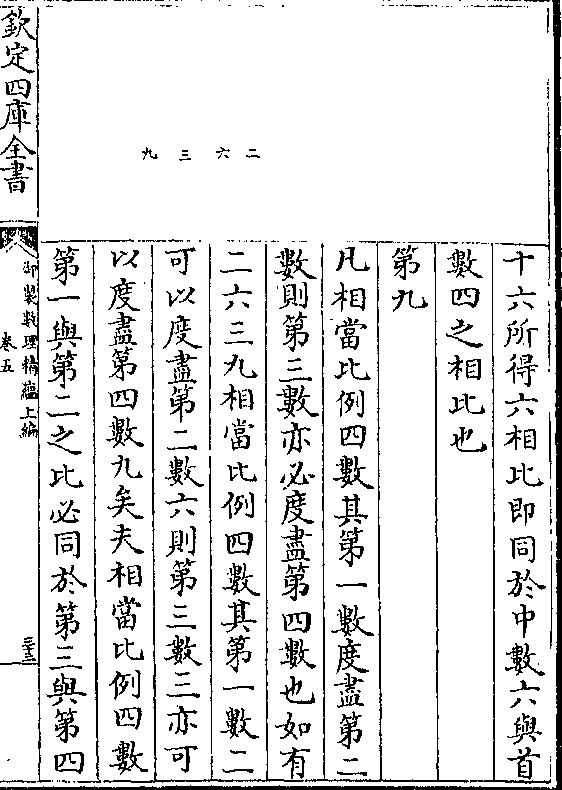 十六所得六相比即同於中數六與首
數四之相比也
第九
凡相當比例四數其第一數度盡第二
數則第三數亦必度盡第四數也如有
二六三九相當比例四數其第一數二
可以度盡第二數六則第三數三亦可
以度盡第四數九矣夫相當比例四數
第一與第二之比必同於第三與第四
二 六 三 九
欽定四庫全書
御製數理精蘊上編
卷五
三十三